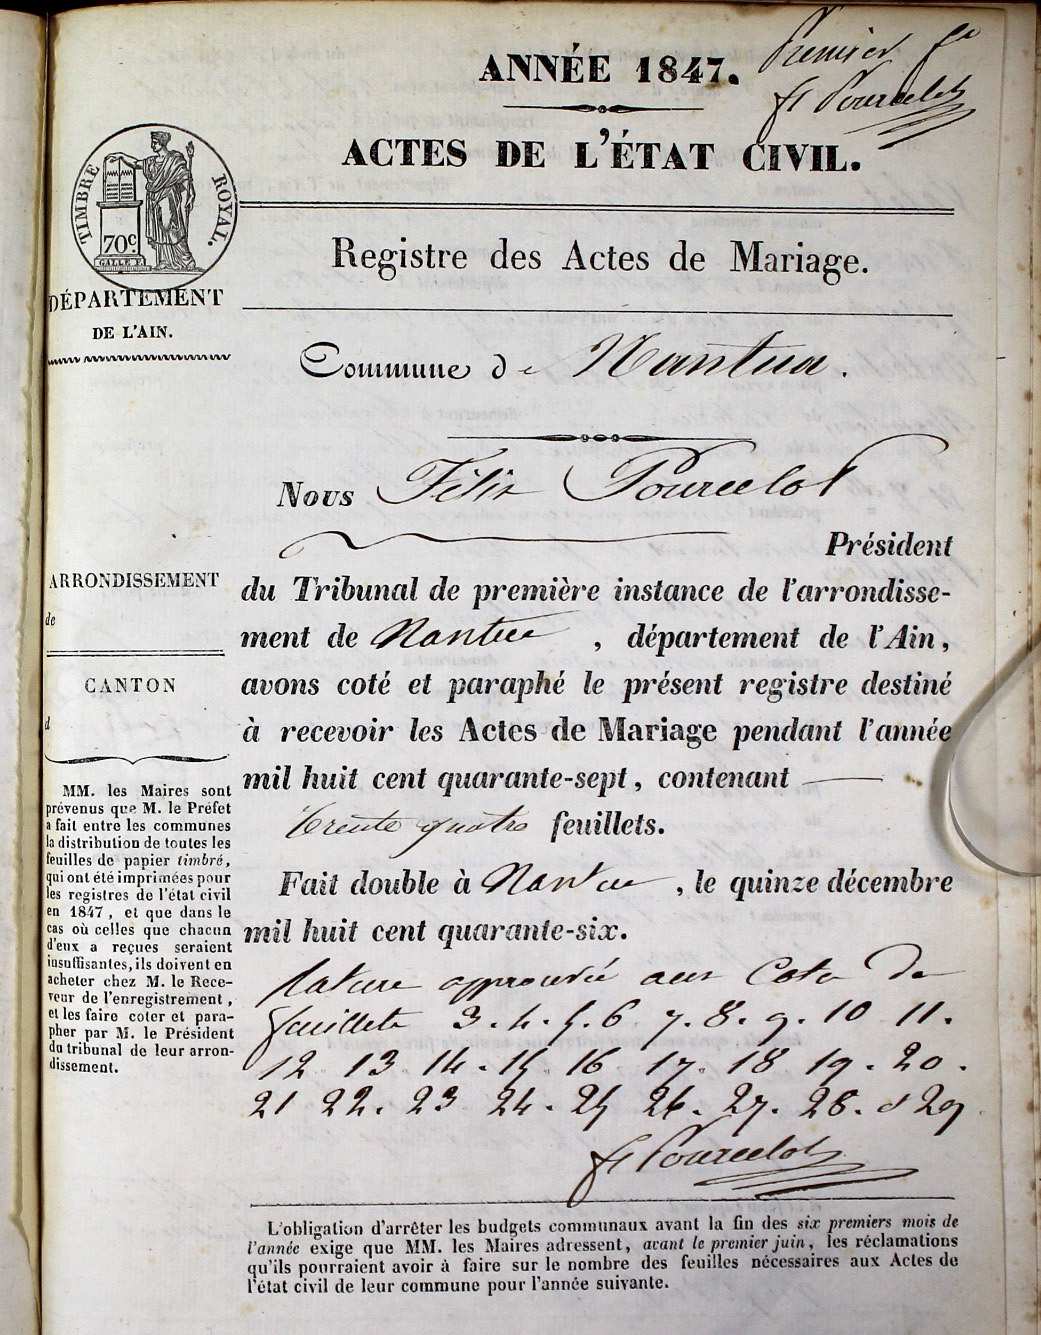 Premier f.et
ANNÉE 1847.
f Pourcelot
ACTES DE L'ÉTAT CIVIL.
TIMBRE ROYAL.
70 c.
Registre des Actes de Mariage.
DÉPARTEMENT
DE L'AIN.
Commune de Nantua.
Nous Félix Pourcelot
Président
du Tribunal de première instance de l'arrondisse-
ment de Nantua, département de l'Ain,
avons coté et paraphé le présent registre destiné
à recevoir les Actes de Mariage pendant l'année
mil huit cent quarante-sept, contenant
trente quatre feuillets.
Fait double à Nantua, le quinze décembre
mil huit cent quarante-six.
ARRONDISSEMENT
de
CANTON
d
MM. les Maires sont
prévenus que M. le Préfet
a fait entre les communes
la distribution de toutes les
feuilles de papier timbré,
qui ont été imprimées pour
les registres de l'état civil
en 1847, et que dans le
cas où celles que chacun
d'eux a reçues seraient
insuffisantes, ils doivent en
acheter chez M. le Rece-
veur de l'enregistrement,
et les faire coter et para-
pher par M. le Président
du tribunal de leur arron-
dissement.
rature approuvée aux Cote de
feuillets 3. 4. 5. 6 7. 8. 9. 10 11.
12 13 14. 15 16 17. 18 19. 20.
21 22. 23 24. 25 26. 27. 28. & 29
f Pourcelot
L'obligation d'arrêter les budgets communaux avant la fin des six premiers mois de
l'année exige que MM. les Maires adressent, avant le premier juin, les réclamations
qu'ils pourraient avoir à faire sur le nombre des feuilles nécessaires aux Actes de
l'état civil de leur commune pour l'année suivante.